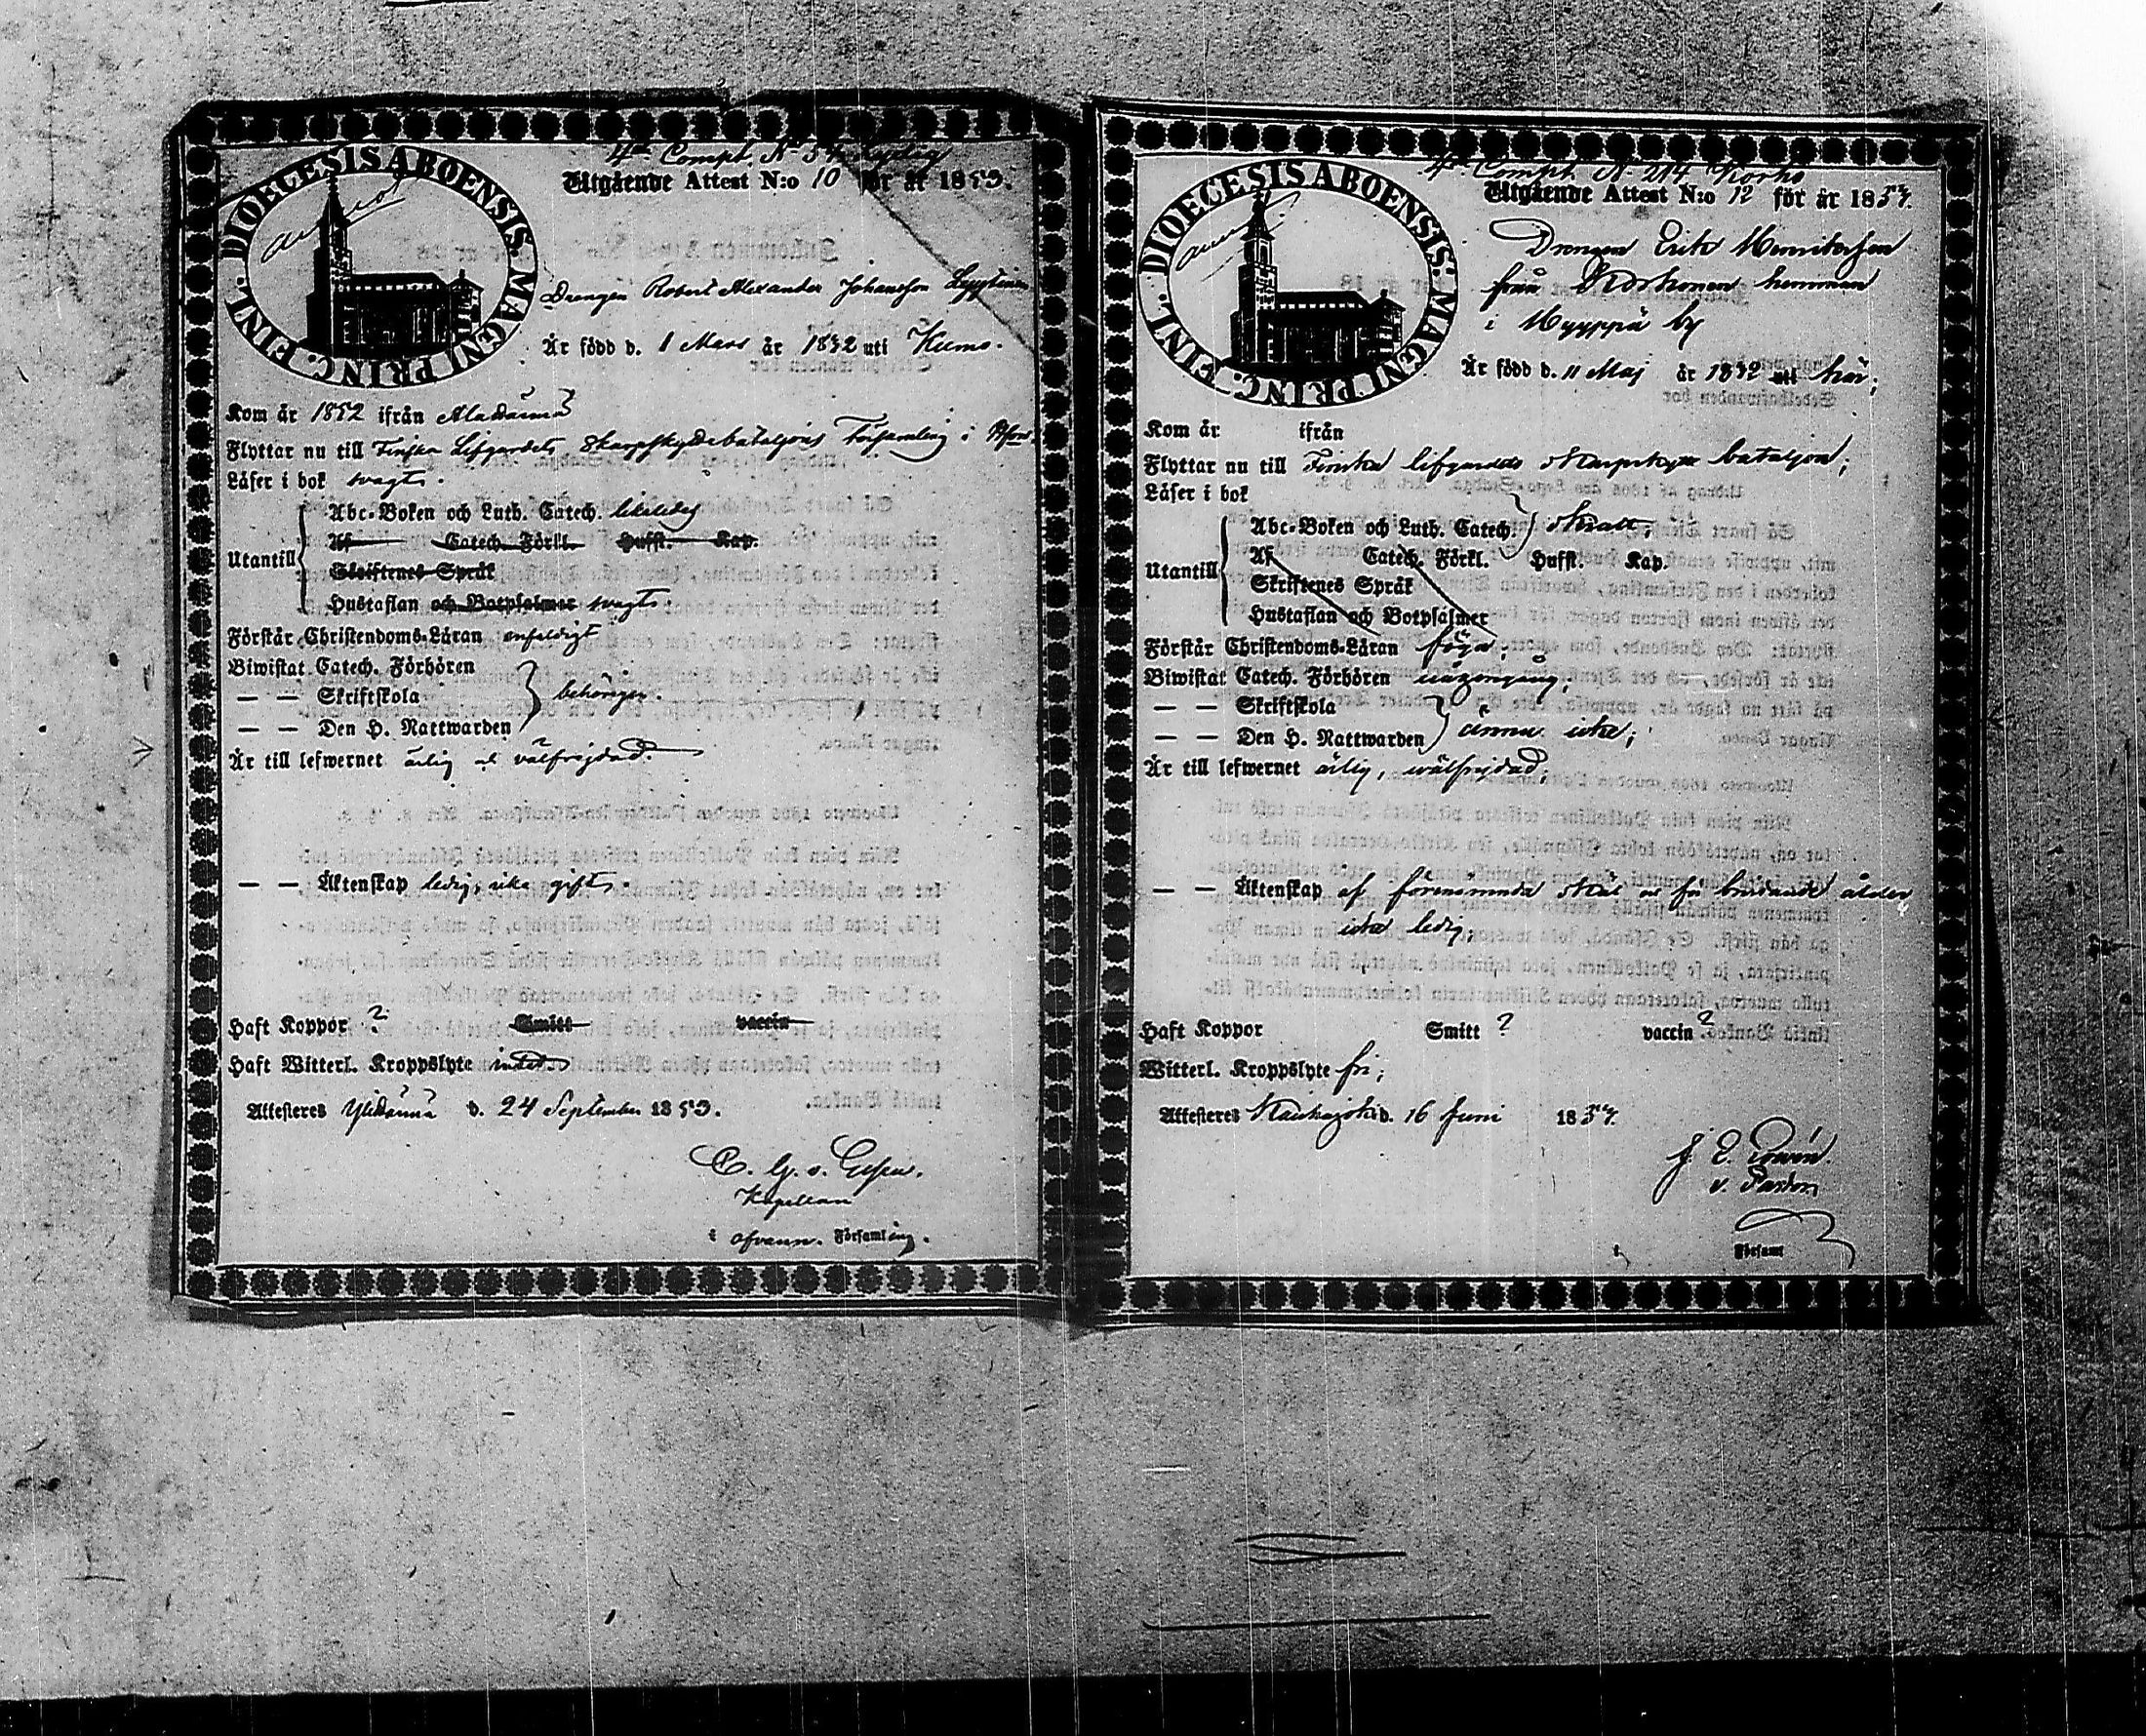 4de Compt. No
DIOECESIS ABOENSIS. MAGNI PRINC. FINL.
Utgående Attest N:o 10 för år 1853.
Drengen Robert Alexander Johansson
Är född d. 1 Mars år 1832 uti Kumo.
Kom år 1852 ifrån
Flyttar nu till Finska Lifgardets Skarpskyttebataljons Församling i Hfors.
Läser i bok svagt.
Utantill
Abc-Boken och Luth. Catech. likaledes
Af Catech. Förkl. Hufst. Kap.
Skriftenes Språk
Hustaflan och Botpsalmer svagt
Förstår Christendoms-Läran enfaldigt
Biwistat Catech. Förhören
— — Skriftskola behörigen.
— — Den H. Nattwarden
Är till lefwernet ärlig välfrejdad.
— — Äktenskap ledig, icke gift.
Haft Koppor ? Smitt vaccin
Haft Witterl. Kroppslyte intet
Attesteras d. 24 September 1853.
Kapellan
i ofvann. Församling.
4de Compt. No 214 Korho
DIOECESIS ABOENSIS. MAGNI PRINC. FINL.
Utgående Attest N:o 12 för år 1854.
Drengen Erik Henriksson
från Korhonen hemman
i Hyyppä by
Är född d. 11 Maj år 1832 uti här;
Kom år ifrån
Flyttar nu till Finska lifgardets skarpskytte bataljon;
Läser i bok
Utantill
Abc-Boken och Luth. Catech. skralt;
Af Catech. Förkl. Hufst. Kap.
Skriftenes Språk
Hustaflan och Botpsalmer
Förstår Christendoms-Läran föga;
Biwistat Catech. Förhören någongång;
— — Skriftskola
— — Den H. Nattwarden ännu icke;
Är till lefwernet ärlig, wälfrejdad;
— — Äktenskap af förenämnda skäl för bristande ålder
icke ledig;
Haft Koppor Smitt ? vaccin ?
Witterl. Kroppslyte fri;
Attesteras Kauhajoki d. 16 Juni 1854.
v. Pastor
i Församl